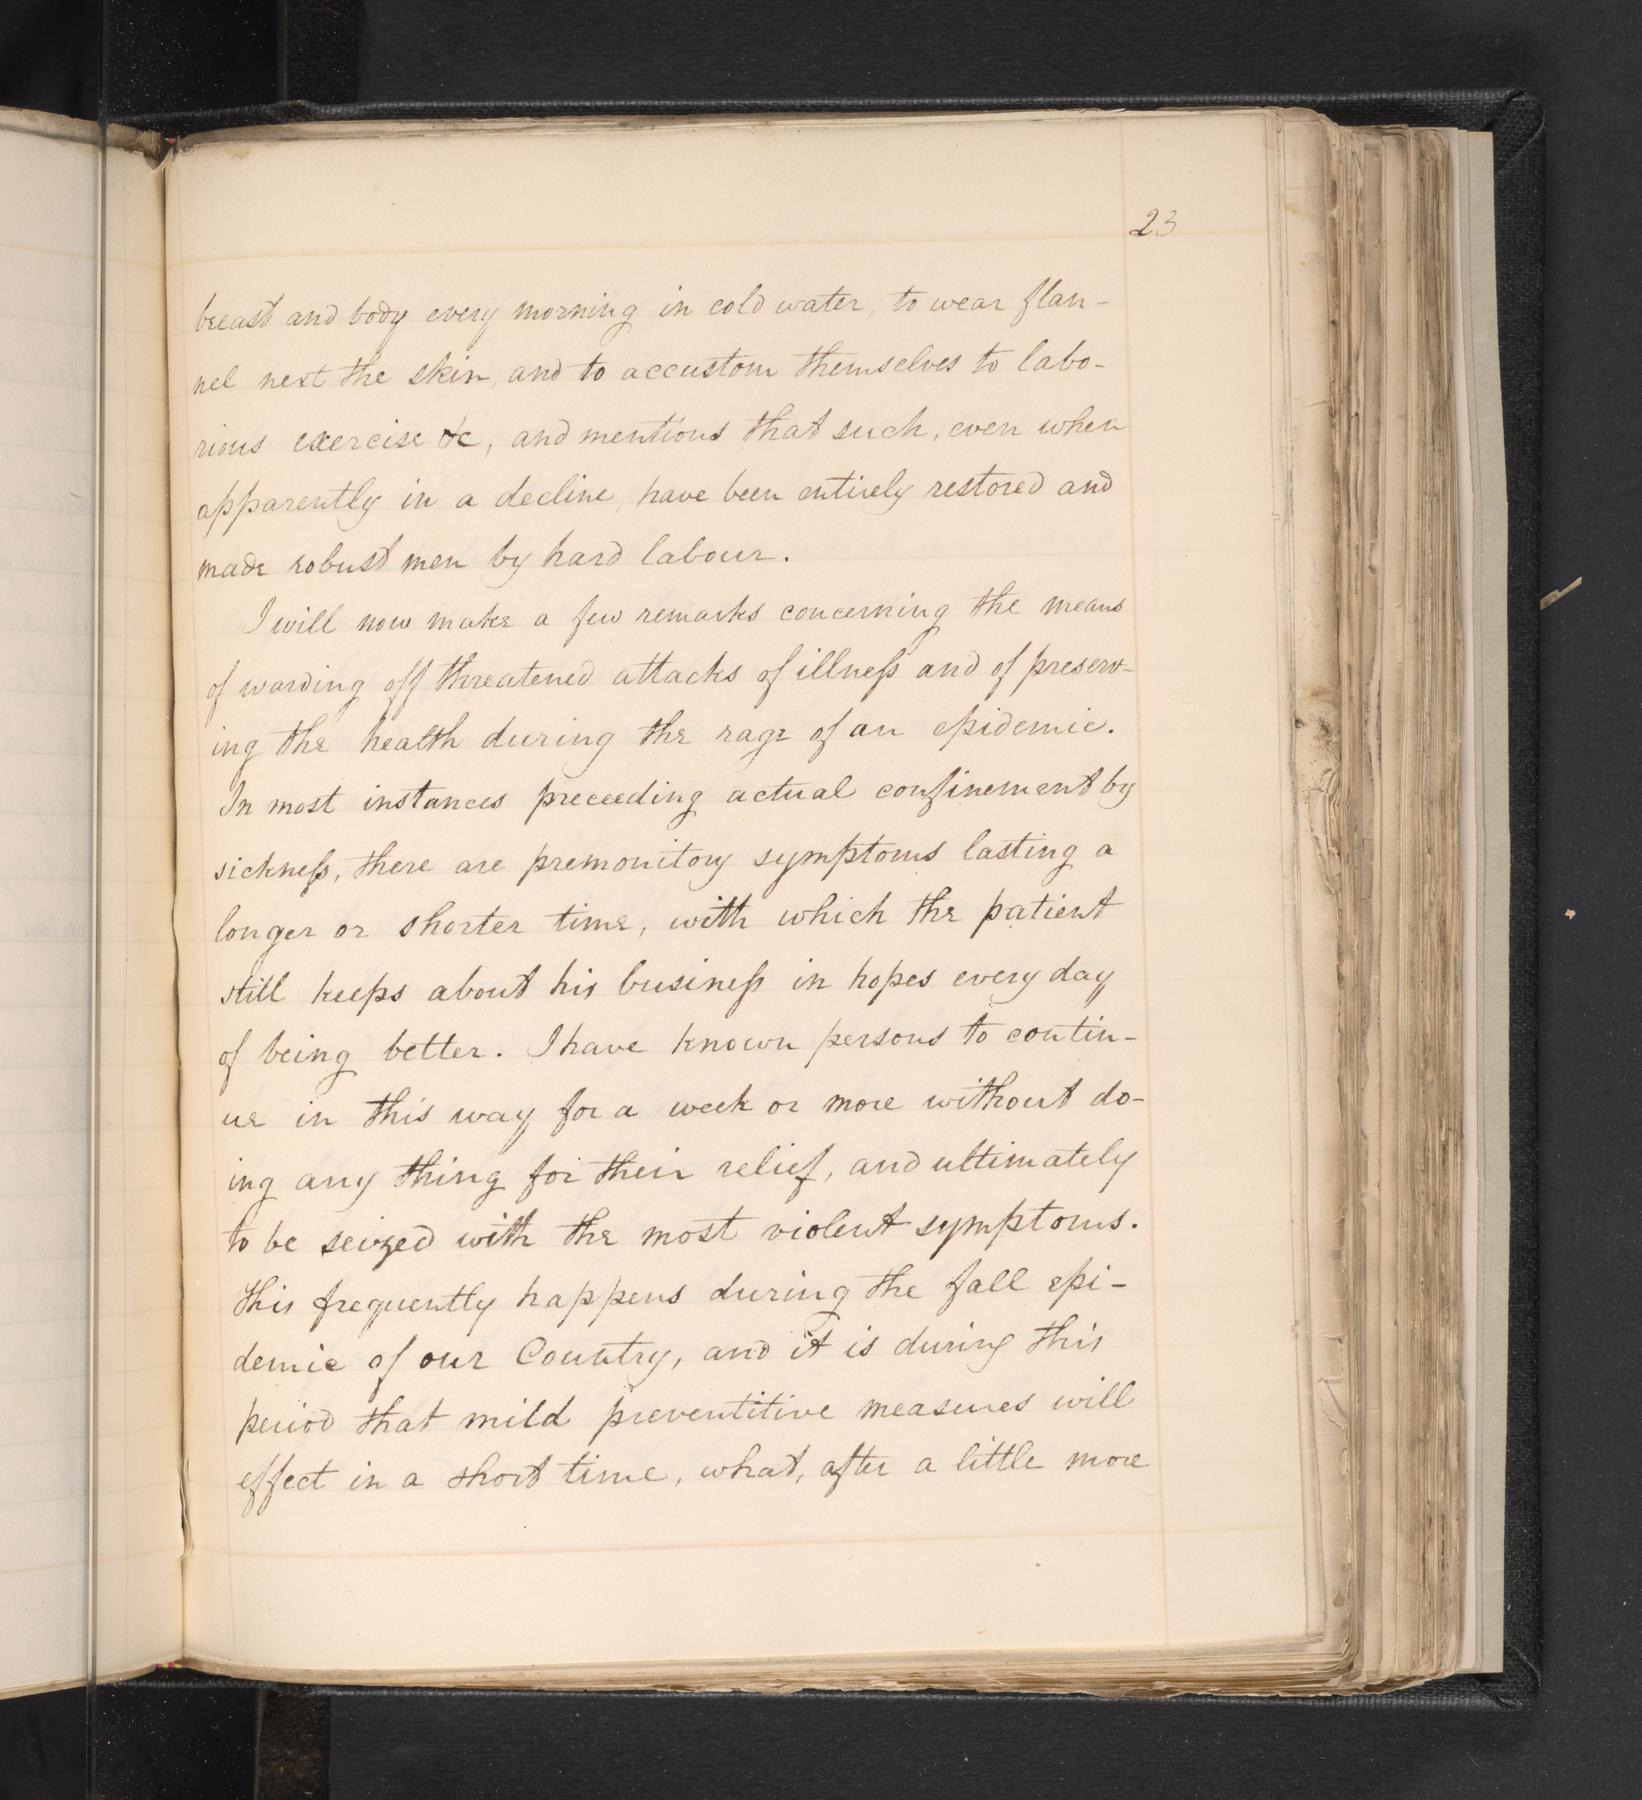 23
breast and body every morning in cold water, to wear flan-
nel next the skin, and to accustom themselves to labo-
rious exercise &c, and mentions that such, even when
apparently in a decline, have been entirely restored and
made robust men by hard labour.
I will now make a few remarks concerning the means
of warding off threatened attacks of illness and of preserv-
ing the health during the rage of an epidemic.
In most instances preceeding actual confinement by
sickness, there are premonitory symptoms lasting a
longer or shorter time, with which the patient
still keeps about his business in hopes every day
of being better. I have known persons to contin-
ue in this way for a week or more without do-
ing any thing for their relief, and ultimately
to be seized with the most violent symptoms.
This frequently happens during the fall epi-
demic of our Country, and it is during this
period that mild preventitive measures will
effect in a short time, what, after a little more